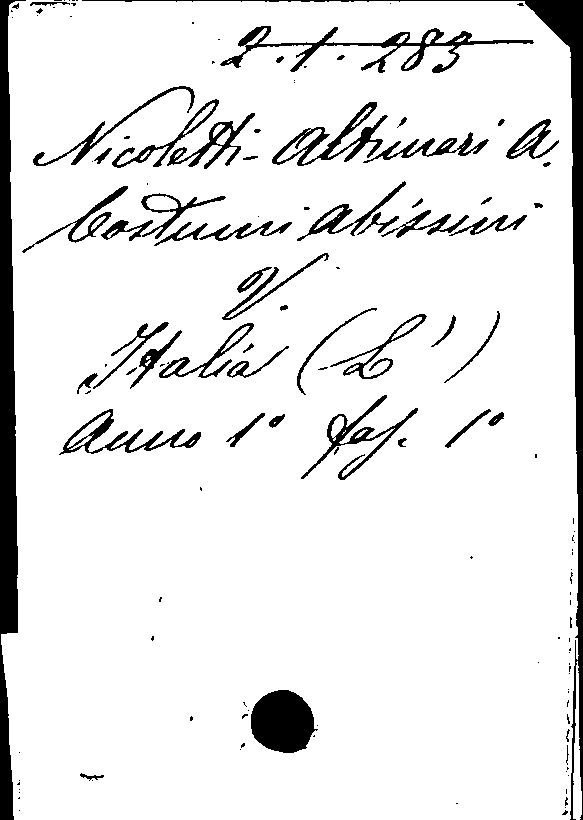 2.1.283
Nicoletti-Altimari A.
Costumi abissini
V.
Italia (L')
Anno 1° fas. 1°